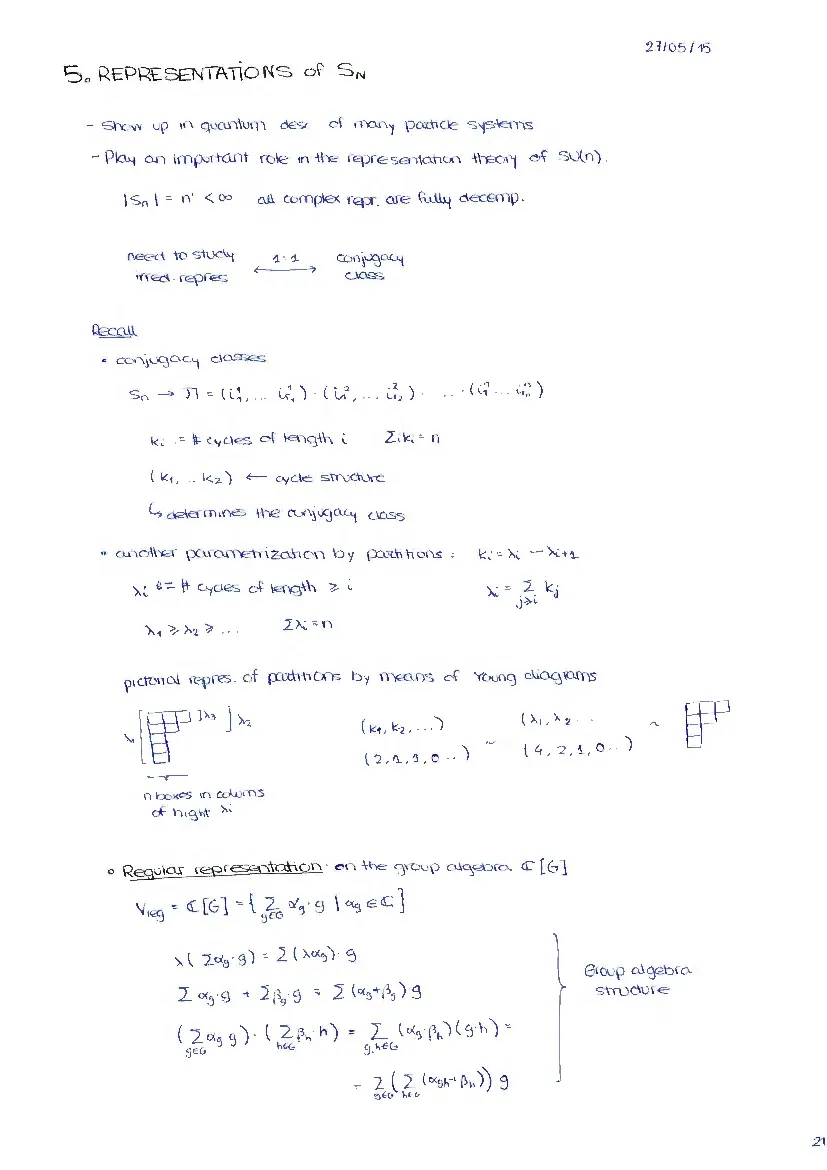 27/05/15
5. REPRESENTATIONS of SN
- Show up in quantum desc of many particle systems
- Play an important role in the representation theory of SU(n).
|Sn| = n! < ∞ all complex repr. are fully decomp.
need to study 1:1 conjugacy
irred. repres ⟷ class
Recall
• conjugacy classes
Sn → Π = (i₁¹, ... i¹r₁) · (i₁², ... i²r₂) · ... · (
ki := # cycles of length i Σiki = n
(k1, .. k2) ← cycle structure
↳ determines the conjugacy class
• another parametrization by partitions : ki = λi - λi+1
λi := # cycles of length ≥ i λi = Σ kj
j≥i
λ1 ≥ λ2 ≥ ... Σλi = n
pictorial repres. of partitions by means of Young diagrams
λ1 [ ]λ3 ]λ2 (k1, k2, ...) (λ1, λ2 ..
(2,1,1,0..) ~ (4,2,1,0..) ~
n boxes in colums
of hight λi
• Regular representation: on the group algebra ℂ[G]
Vreg = ℂ[G] = { Σg∈G αg·g | αg ∈ ℂ }
λ( Σαg·g) = Σ(λαg)·g
Σ αg·g + Σβg·g = Σ(αg+βg)g
( Σg∈G αg g) · ( Σh∈G βh·h) = Σg,h∈G (αg·βh)(g·h) =
= Σg∈G ( Σh∈G (αgh⁻¹ βh)) g
Group algebra
structure
21